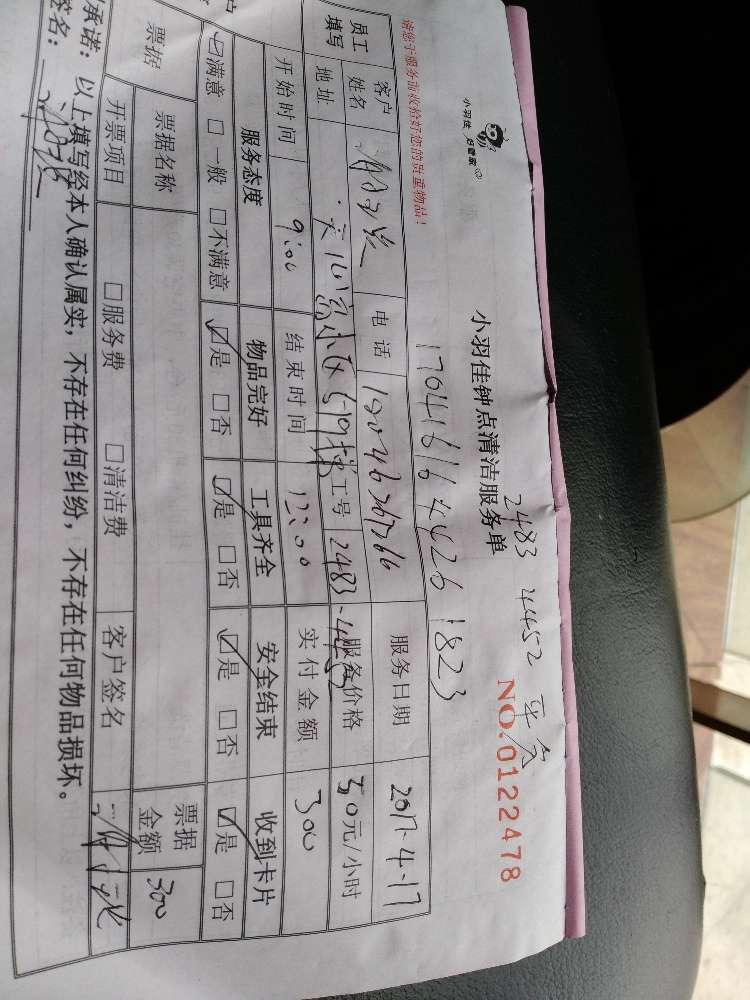 小羽佳 好管家
小羽佳钟点清洁服务单
2483 4452 平分
NO:0122478
请您于服务前收拾好您的贵重物品!
1704161644261823
员工填写 客户姓名 电话 服务日期 2017-4-17
地址 工号 2483-4452 服务价格 50元/小时
开始时间 9:00 结束时间 12:00 实付金额 300
服务态度 物品完好 工具齐全 安全结束 收到卡片
☑满意 □一般 □不满意 ☑是 □否 ☑是 □否 ☑是 □否 ☑是 □否
票据 票据名称 票据金额 300
开票项目 □服务费 □清洁费 客户签名
承诺:以上填写经本人确认属实,不存在任何纠纷,不存在任何物品损坏。
签名: